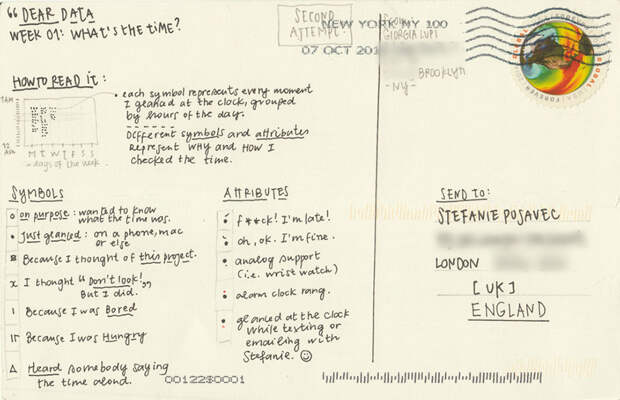 “ DEAR DATA
WEEK 01: WHAT'S THE TIME?
HOW TO READ IT:
• each symbol represents every moment
I glanced at the clock, grouped
by hours of the day.
Different symbols and attributes
represent WHY and HOW I
checked the time.
M T W T F S S
- days of the week
SYMBOLS
on purpose: wanted to know
what the time was.
Just glanced: on a phone, mac
or else
Because I thought of this project.
x I thought “Don't look!”
But I did.
Because I was Bored
Because I was Hungry
Heard somebody saying
the time aloud.
ATTRIBUTES
f**ck! I'm late!
oh, ok. I'm fine.
analog support
(i.e. wrist watch)
alarm clock rang.
glanced at the clock
while texting or
emailing with
Stefanie. ☺
SECOND
ATTEMPT!
NEW YORK NY 100
07 OCT 201
FROM:
GIORGIA LUPI
BROOKLYN
- NY -
GLOBAL
FOREVER
SEND TO:
STEFANIE POSAVEC
LONDON
[UK]
ENGLAND
00122$0001